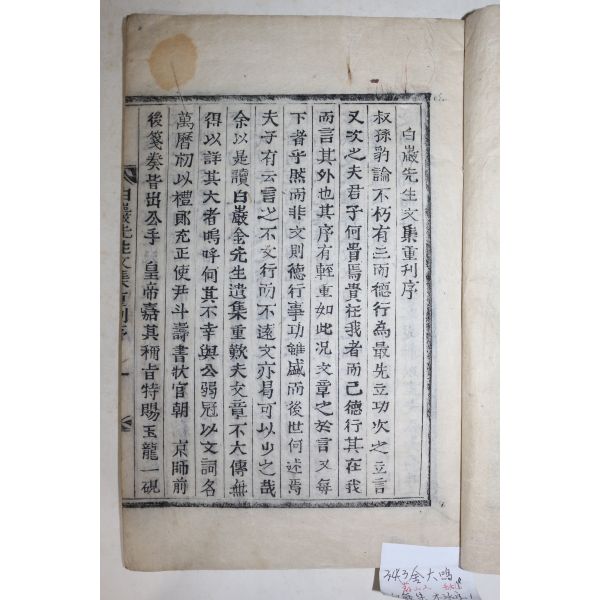 白巖先生文集重刊序
叔孫豹論不朽有三而德行為最先立功次之立言
又次之夫君子何貴焉貴在我者而已德行其在我
而言其外也其序有輕重如此況文章之於言又每
下者乎然而非文則德行事功雖盛而後世何述焉
夫子有云言之不文行而不遠文亦曷可以少之哉
余以是讀白巖金先生遺集重歎夫文章不大傳無
得以詳其大者嗚呼何其不幸與公弱冠以文詞名
萬曆初以禮郎充正使尹斗壽書狀官朝 京師前
後箋奏皆出公手 皇帝嘉其稱旨特賜玉龍一硯
白巖先生文集重刊序 一
343金大鳴